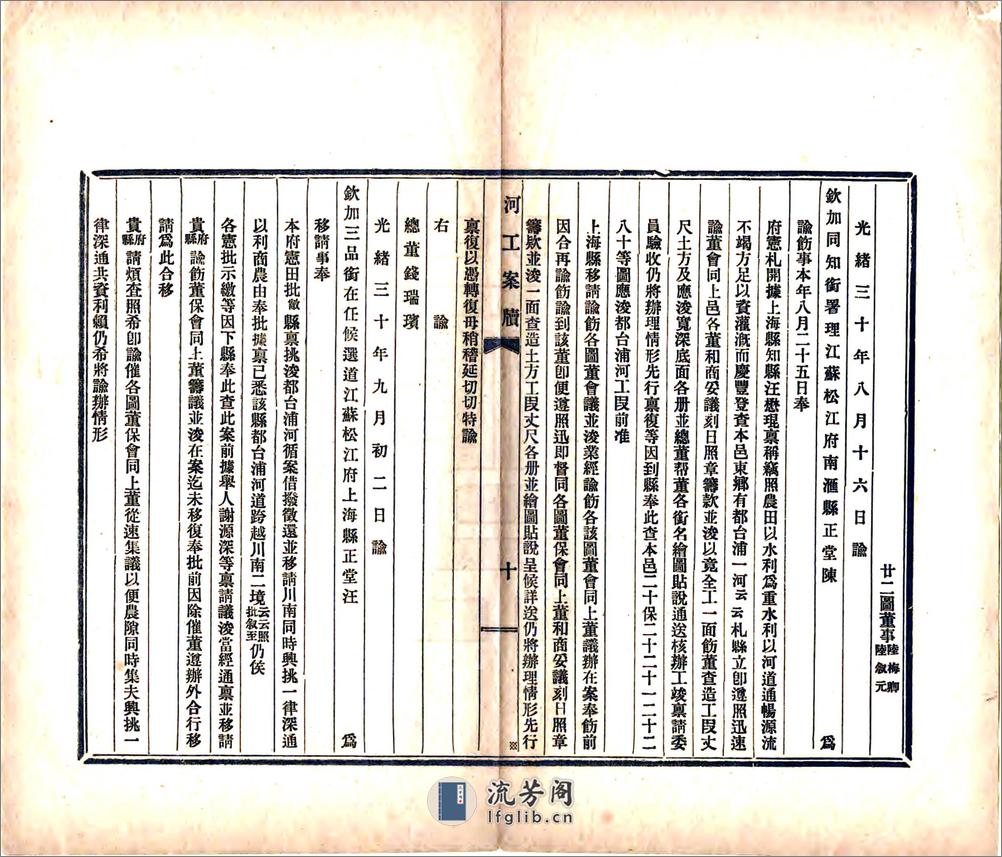 廿二圖董事陸梅卿陸敘元
光緒三十年八月十六日諭
欽加同知銜署理江蘇松江府南滙縣正堂陳　爲
諭飭事本年八月二十五日奉
府憲札開據上海縣知縣汪懋琨稟稱竊照農田以水利爲重水利以河道通暢源流
不竭方足以資灌漑而慶豐登查本邑東鄉有都台浦一河云云札縣立卽遵照迅速
諭董會同上邑各董和商妥議刻日照章籌款並浚以竟全工一面飭董查造工叚丈
尺土方及應浚寬深底面各册並總董帮董各銜名繪圖貼說通送核辦工竣稟請委
員驗收仍將辦理情形先行稟復等因到縣奉此查本邑二十保二十二十一二十二
八十等圖應浚都台浦河工叚前准
上海縣移請諭飭各圖董會議並浚業經諭飭各該圖董會同上董議辦在案奉飭前
因合再諭飭諭到該董卽便遵照迅卽督同各圖董保會同上董和商妥議刻日照章
籌欵並浚一面查造土方工叚丈尺各册並繪圖貼說呈候詳送仍將辦理情形先行
河工案牘
十
稟復以憑轉復毋稍稽延切切特諭
右　諭
總董錢瑞璸
光緒三十年九月初二日諭
欽加三品銜在任候選道江蘇松江府上海縣正堂汪　爲
移請事奉
本府憲田批敝縣稟挑浚都台浦河循案借撥徵還並移請川南同時興挑一律深通
以利商農由奉批據稟已悉該縣都台浦河道跨越川南二境云云照批敘至仍俟
各憲批示繳等因下縣奉此查此案前據舉人謝源深等稟請議浚當經通稟並移請
貴府縣諭飭董保會同上董籌議並浚在案迄未移復奉批前因除催董遵辦外合行移
請爲此合移
貴府縣請煩查照希卽諭催各圖董保會同上董從速集議以便農隙同時集夫興挑一
律深通共資利賴仍希將諭辦情形
流芳阁
lfglib.cn